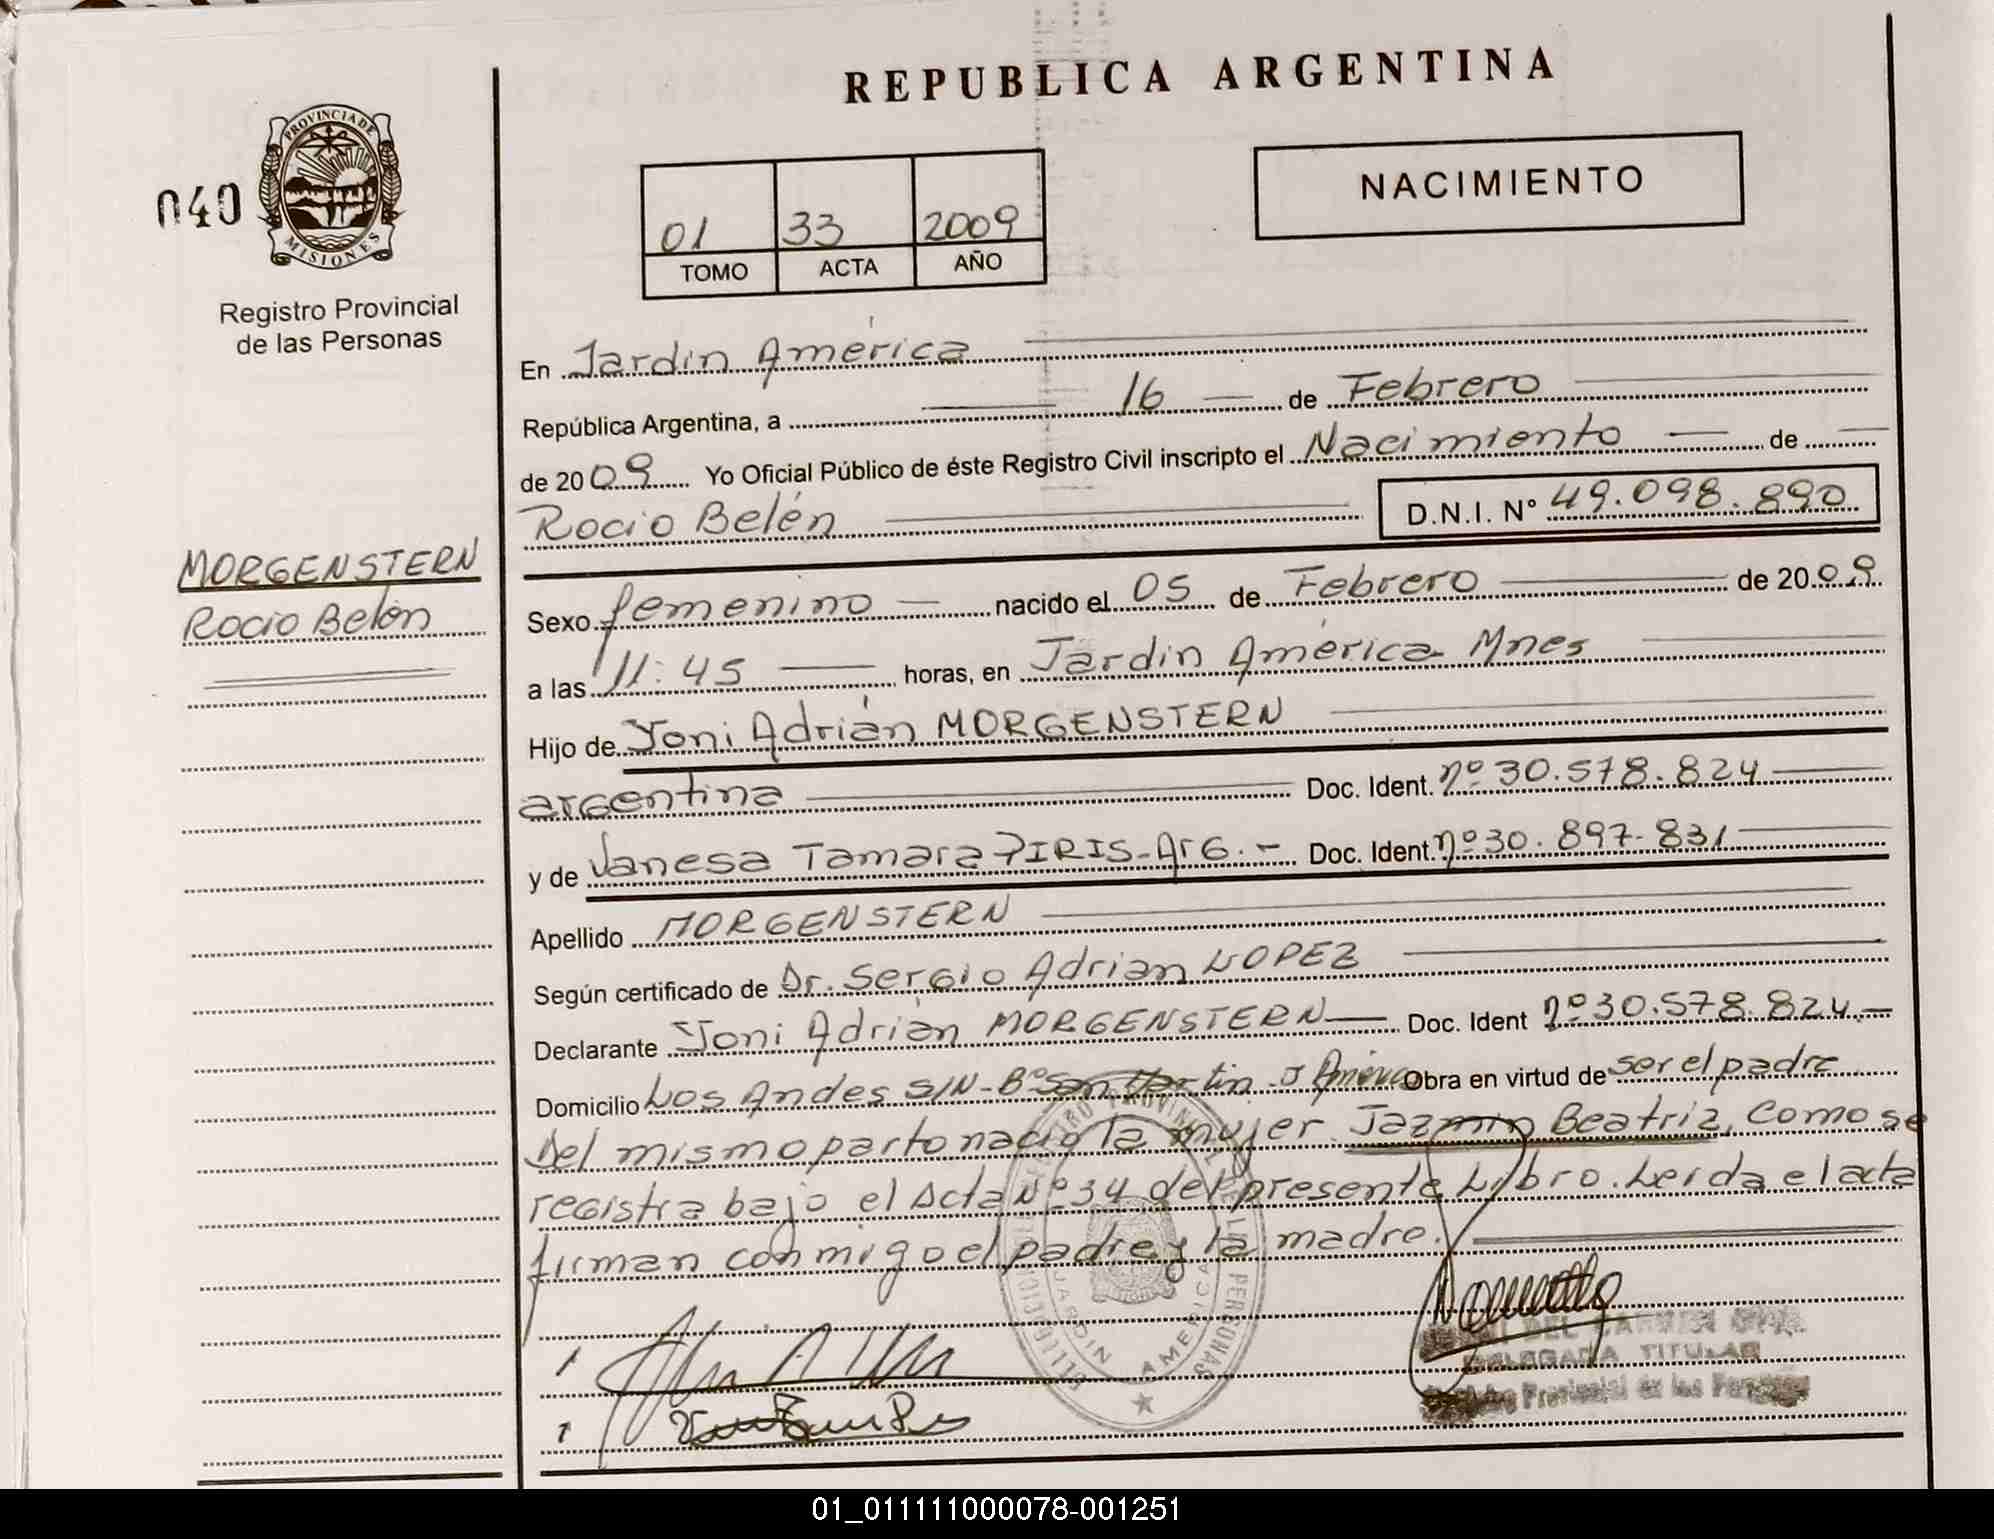 REPUBLICA ARGENTINA
PROVINCIA DE
MISIONES
040
Registro Provincial
de las Personas
NACIMIENTO
01 33 2009
TOMO ACTA AÑO
En Jardin América
República Argentina, a 16 de Febrero
de 2009 Yo Oficial Público de éste Registro Civil inscripto el Nacimiento de
Rocio Belén D.N.I. Nº 49.098.890
MORGENSTERN
Rocio Belén
Sexo femenino nacido el 05 de Febrero de 2009
a las 11:45 horas, en Jardin América Mnes
Hijo de Yoni Adrián MORGENSTERN
argentina Doc. Ident. nº 30.578.824
y de Vanesa Tamara PIRIS-Arg.- Doc. Ident. nº 30.897.831
Apellido MORGENSTERN
Según certificado de Dr. Sergio Adrian LOPEZ
Declarante Yoni Adrián MORGENSTERN Doc. Ident nº 30.578.824.-
Domicilio Los Andes S/N-Bº San Martin-J América Obra en virtud de ser el padre
Del mismo parto nació la mujer Jazmin Beatriz, como se
registra bajo el Acta Nº 34 del presente Libro. Leida el acta
firman conmigo el padre y la madre.
REGISTRO PROVINCIAL DE LAS PERSONAS
JARDIN AMERICA
DELEGADA TITULAR
Registro Provincial de las Personas
01_011111000078-001251